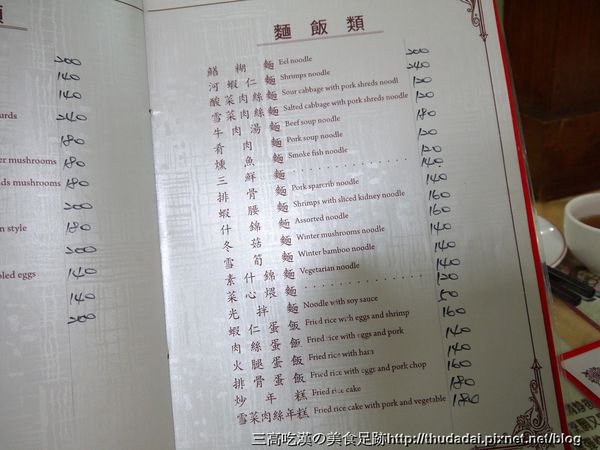 類
200
140
140
urds 240
180
er mushrooms 180
ds mushrooms 180
200
n style 180
200
oled eggs 140
140
200
麵飯類
鱔糊麵 Eel noodle 200
河蝦仁麵 Shrimps noodle 240
酸菜肉絲麵 Sour cabbage with pork shreds noodl 120
雪菜肉絲麵 Salted cabbage with pork shreds noodle 120
牛肉湯麵 Beef soup noodle 180
肴肉麵 Pork soup noodle 120
燻魚麵 Smoke fish noodle 120
三鮮麵 . . . . . . . . . . . . . . 140
排骨麵 Pork sparcrib noodle 140
蝦腰麵 Shrimps with sliced kidney noodle 160
什錦麵 Assorted noodle 160
冬菇麵 Winter mushrooms noodle 140
雪筍麵 Winter bamboo noodle 140
素什錦麵 Vegetarian noodle 140
菜心煨麵 . . . . . . . . . . . . . . 120
光拌麵 Noodle with soy sauce 50
蝦仁蛋飯 Fried rice with eggs and shrimp 160
肉絲蛋飯 Fried rice with eggs and pork 140
火腿蛋飯 Fried rice with ham 140
排骨蛋飯 Fried rice with eggs and pork chop 160
炒年糕 Fried rice cake 180
雪菜肉絲年糕 Fried rice cake with pork and vegetable 180
三高吃漢の美食足跡http://thudadai.pixnet.net/blog